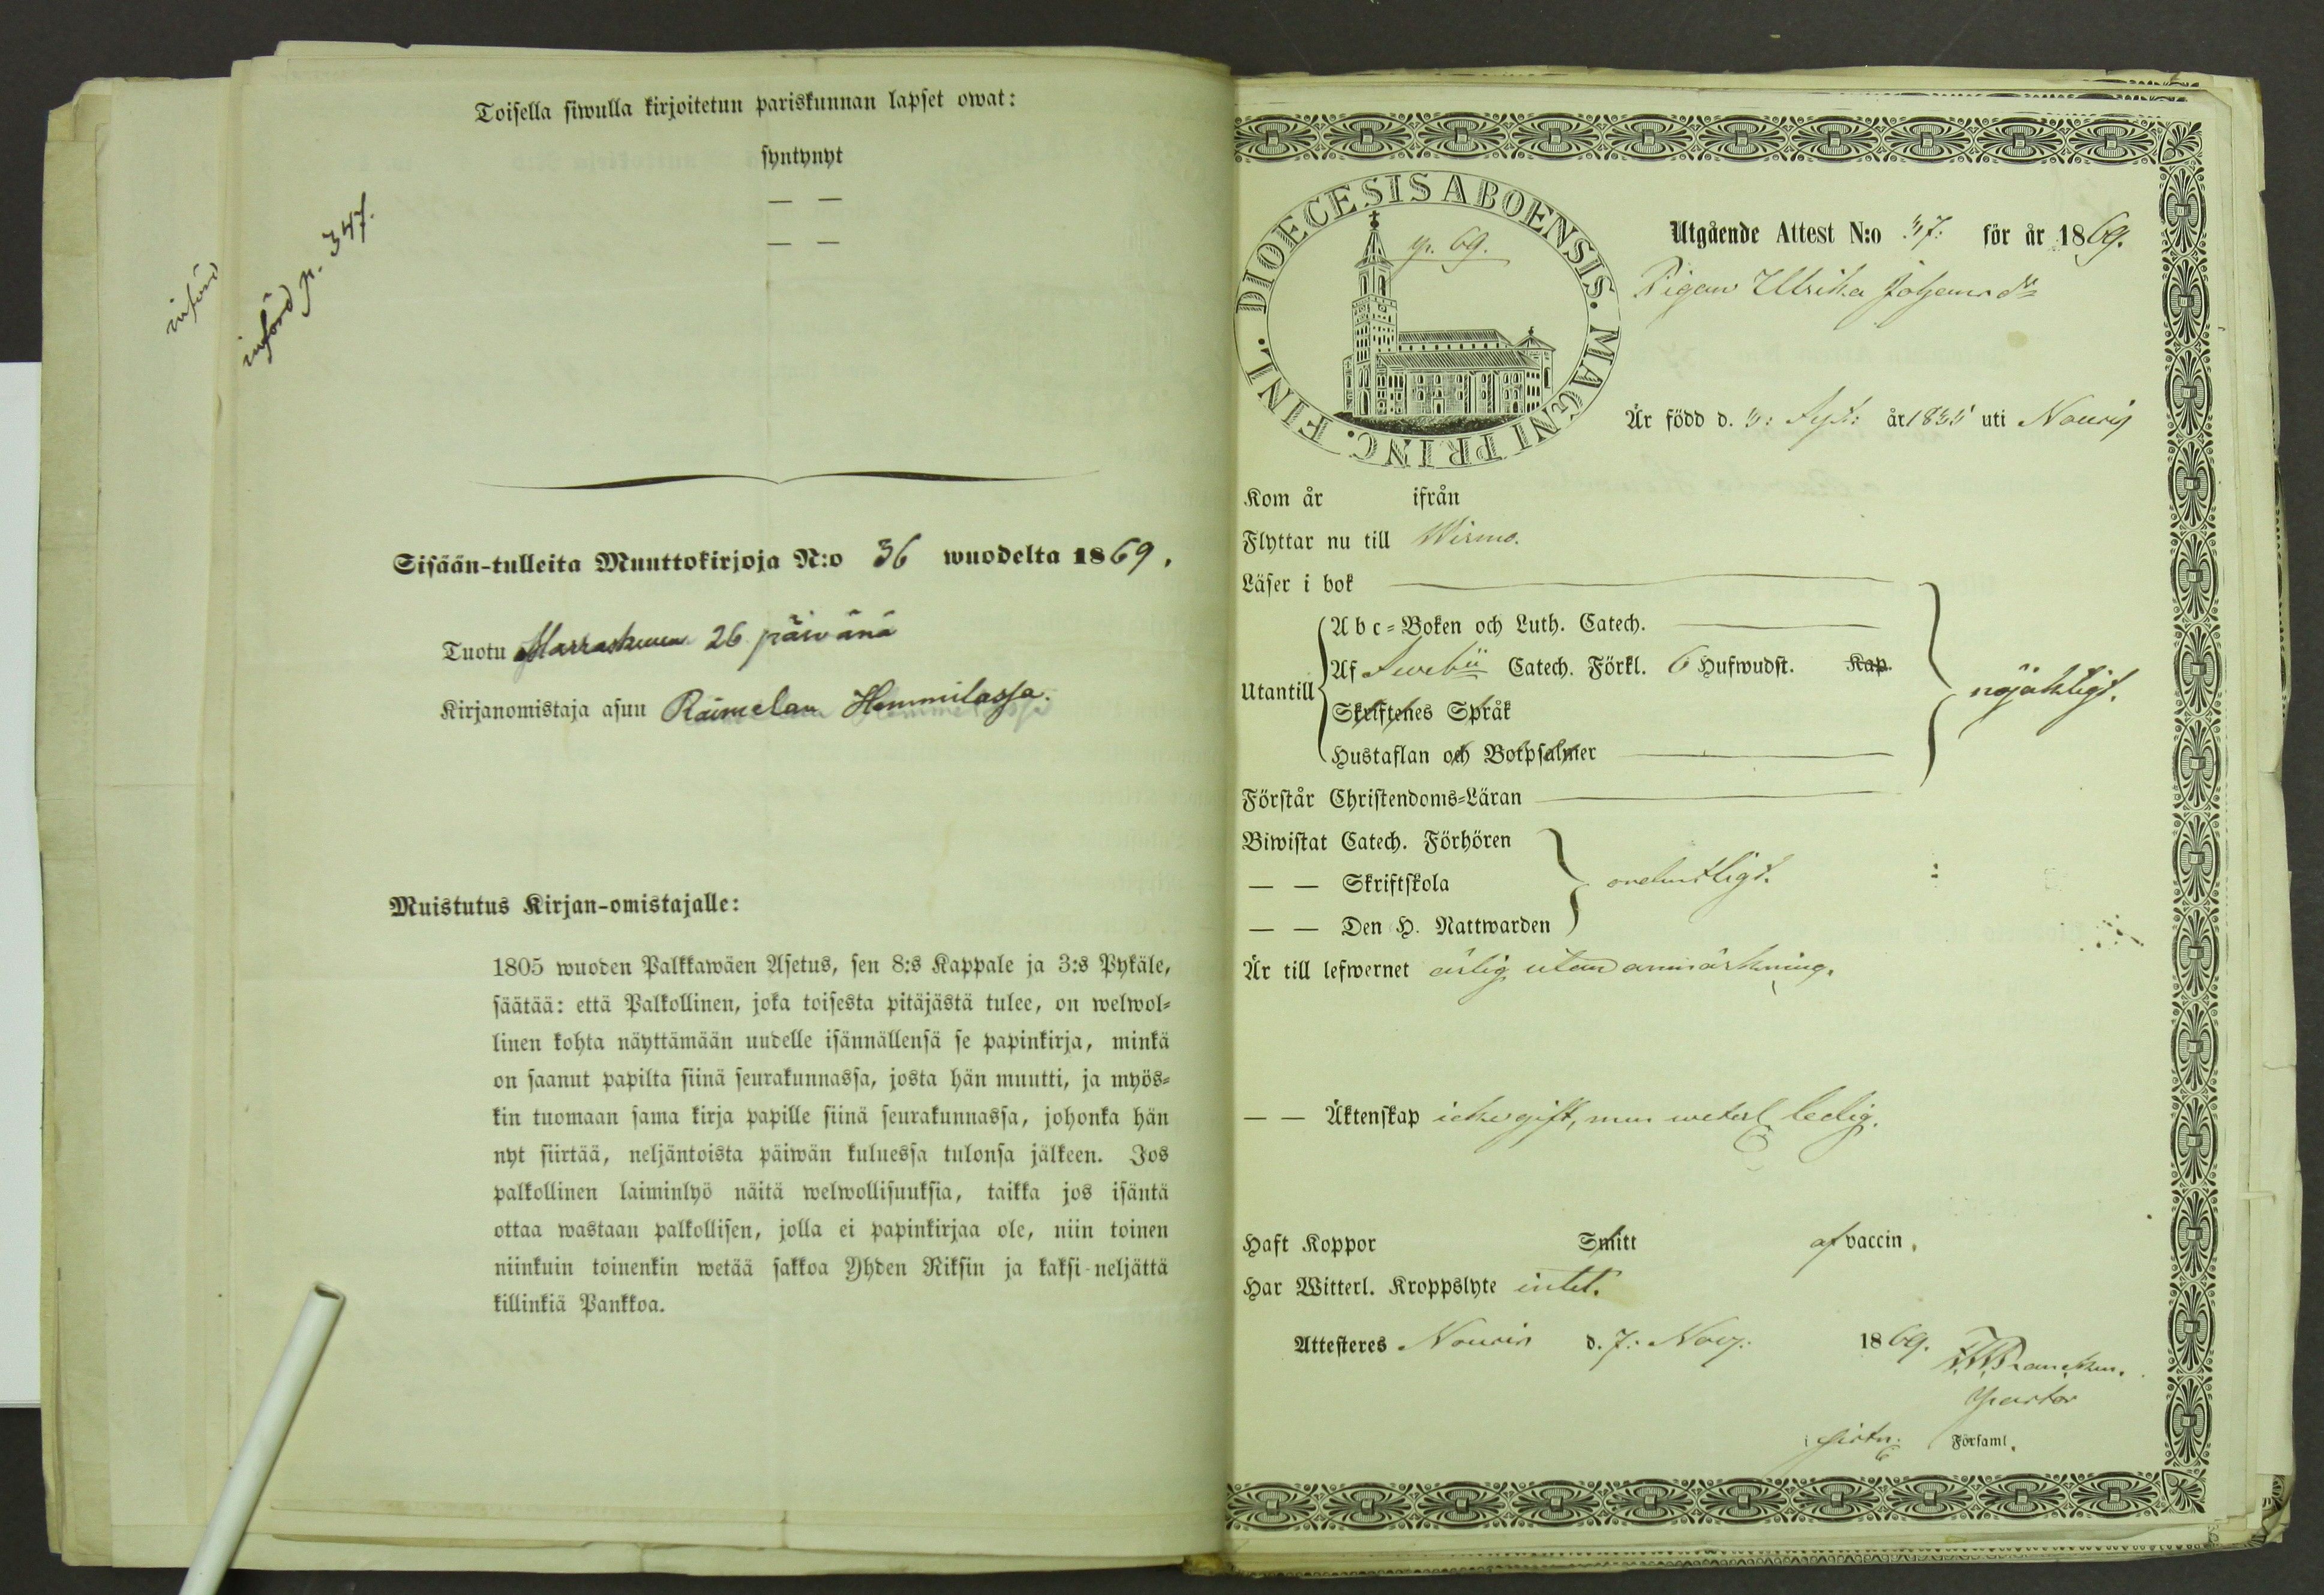 Toisella siwulla kirjoitetun pariskunnan lapset owat:
syntynyt
— —
— —
införd
införd p. 347.
Sisään-tulleita Muuttokirjoja N:o 36 wuodelta 1869.
Tuotu Marraskuun 26 päivänä
Kirjanomistaja asuu Raimelan Hemmilassa.
Muistutus Kirjan-omistajalle:
1805 wuoden Palkkawäen Asetus, sen 8:s Kappale ja 3:s Pykäle,
säätää: että Palkollinen, joka toisesta pitäjästä tulee, on welwol-
linen kohta näyttämään uudelle isännällensä se papinkirja, minkä
on saanut papilta siinä seurakunnassa, josta hän muutti, ja myös-
kin tuomaan sama kirja papille siinä seurakunnassa, johonka hän
nyt siirtää, neljäntoista päiwän kuluessa tulonsa jälkeen. Jos
palkollinen laiminlyö näitä welwollisuuksia, taikka jos isäntä
ottaa wastaan palkollisen, jolla ei papinkirjaa ole, niin toinen
niinkuin toinenkin wetää sakkoa Yhden Riksin ja kaksi neljättä
killinkiä Pankkoa.
DIOECESIS ABOENSIS. MAGNI PRINC. FINL.
p. 69.
Utgående Attest N:o 37: för år 1869.
Pigan Ulrika Johansdr
Är född d. 3: Sept: år 1835 uti Nousis
Kom år ifrån
Flyttar nu till Wirmo.
Läser i bok
Utantill
Abc-Boken och Luth. Catech.
Af Svebii Catech. Förkl. 6 Hufwudst. Kap.
Skriftenes Språk
Hustaflan och Botpsalmer
nöjaktigt.
Förstår Christendoms-Läran
Biwistat Catech. Förhören
— — Skriftskola
— — Den H. Nattwarden
ordentligt.
Är till lefwernet ärlig utan anmärkning.
— — Äktenskap icke gift, men weterl. ledig.
Haft Koppor Smitt af vaccin.
Har Witterl. Kroppslyte intet.
Attesteres Nousis d. 7: Nov: 1869.
Pastor
i Församl.